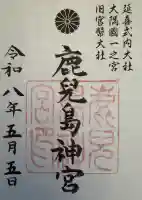 延喜式内大社
大隅國一之宮
旧官幣大社
鹿兒島神宮
令和八年五月五日